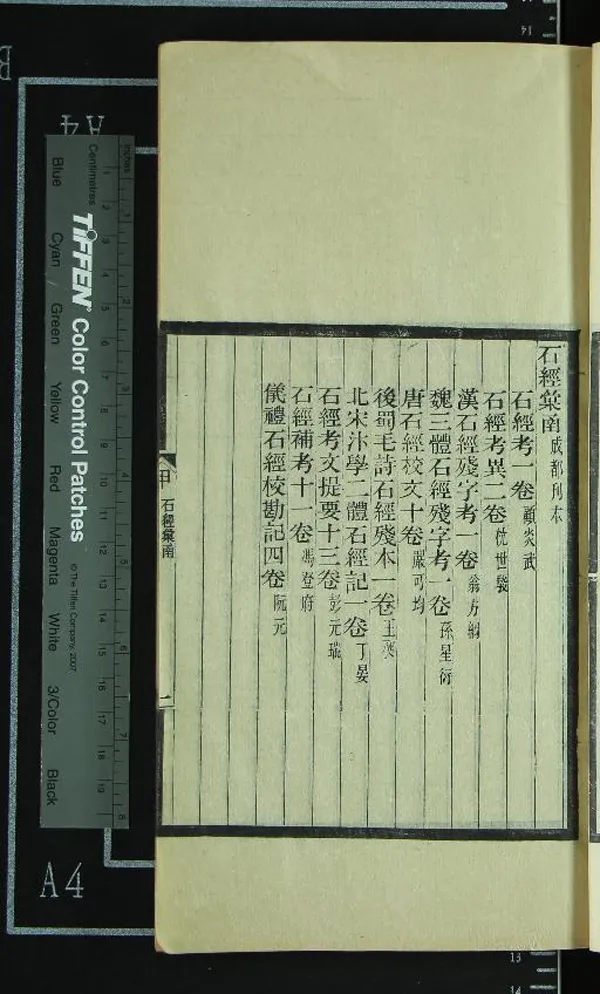 石經彙函 成都刊本
石經考一卷 顧炎武
石經考異二卷 杭世駿
漢石經殘字考一卷 翁方綱
魏三體石經殘字考一卷 孫星衍
唐石經校文十卷 嚴可均
後蜀毛詩石經殘本一卷 王昶
北宋汴學二體石經記一卷 丁晏
石經考文提要十三卷 彭元瑞
石經補考十一卷 馮登府
儀禮石經校勘記四卷 阮元
石經彙函
一
inches
Centimetres
1 2 3 4 5 6 7 8 9 10 11 12 13 14 15 16 17 18 19
1 2 3 4 5 6 7 8
TIFFEN Color Control Patches
© The Tiffen Company, 2007
Blue Cyan Green Yellow Red Magenta White 3/Color Black
A4
A4
B
14
13
14